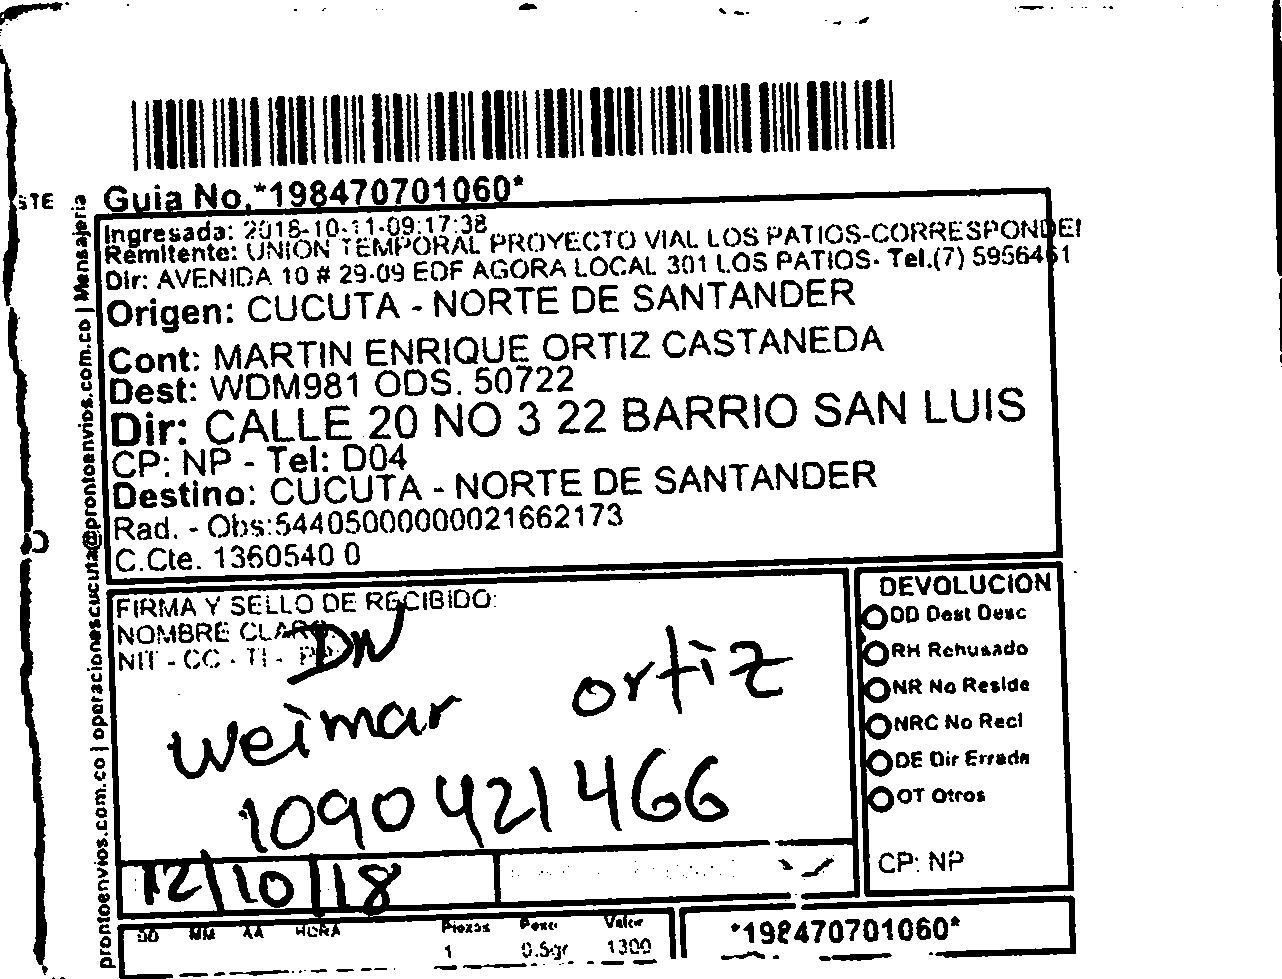 STE
Guia No.*198470701060*
Ingresada: 2018-10-11-09:17:38
Remitente: UNION TEMPORAL PROYECTO VIAL LOS PATIOS-CORRESPONDEI
Dir: AVENIDA 10 # 29-09 EDF AGORA LOCAL 301 LOS PATIOS- Tel.(7) 5956461
Origen: CUCUTA - NORTE DE SANTANDER
Cont: MARTIN ENRIQUE ORTIZ CASTANEDA
Dest: WDM981 ODS. 50722
Dir: CALLE 20 NO 3 22 BARRIO SAN LUIS
CP: NP - Tel: D04
Destino: CUCUTA - NORTE DE SANTANDER
Rad. - Obs:54405000000021662173
C.Cte. 1360540 0
prontoenvios.com.co | operacionescucuta@prontoenvios.com.co | Mensajeria
FIRMA Y SELLO DE RECIBIDO:
NOMBRE CLARO:
NIT - CC - TI -
weimar ortiz
1090421466
12/10/18
DD MM AA HORA
Piezas Peso Valor
1 0.5gr 1300
DEVOLUCION
DD Dest Desc
RH Rehusado
NR No Reside
NRC No Recl
DE Dir Errada
OT Otros
CP: NP
*198470701060*